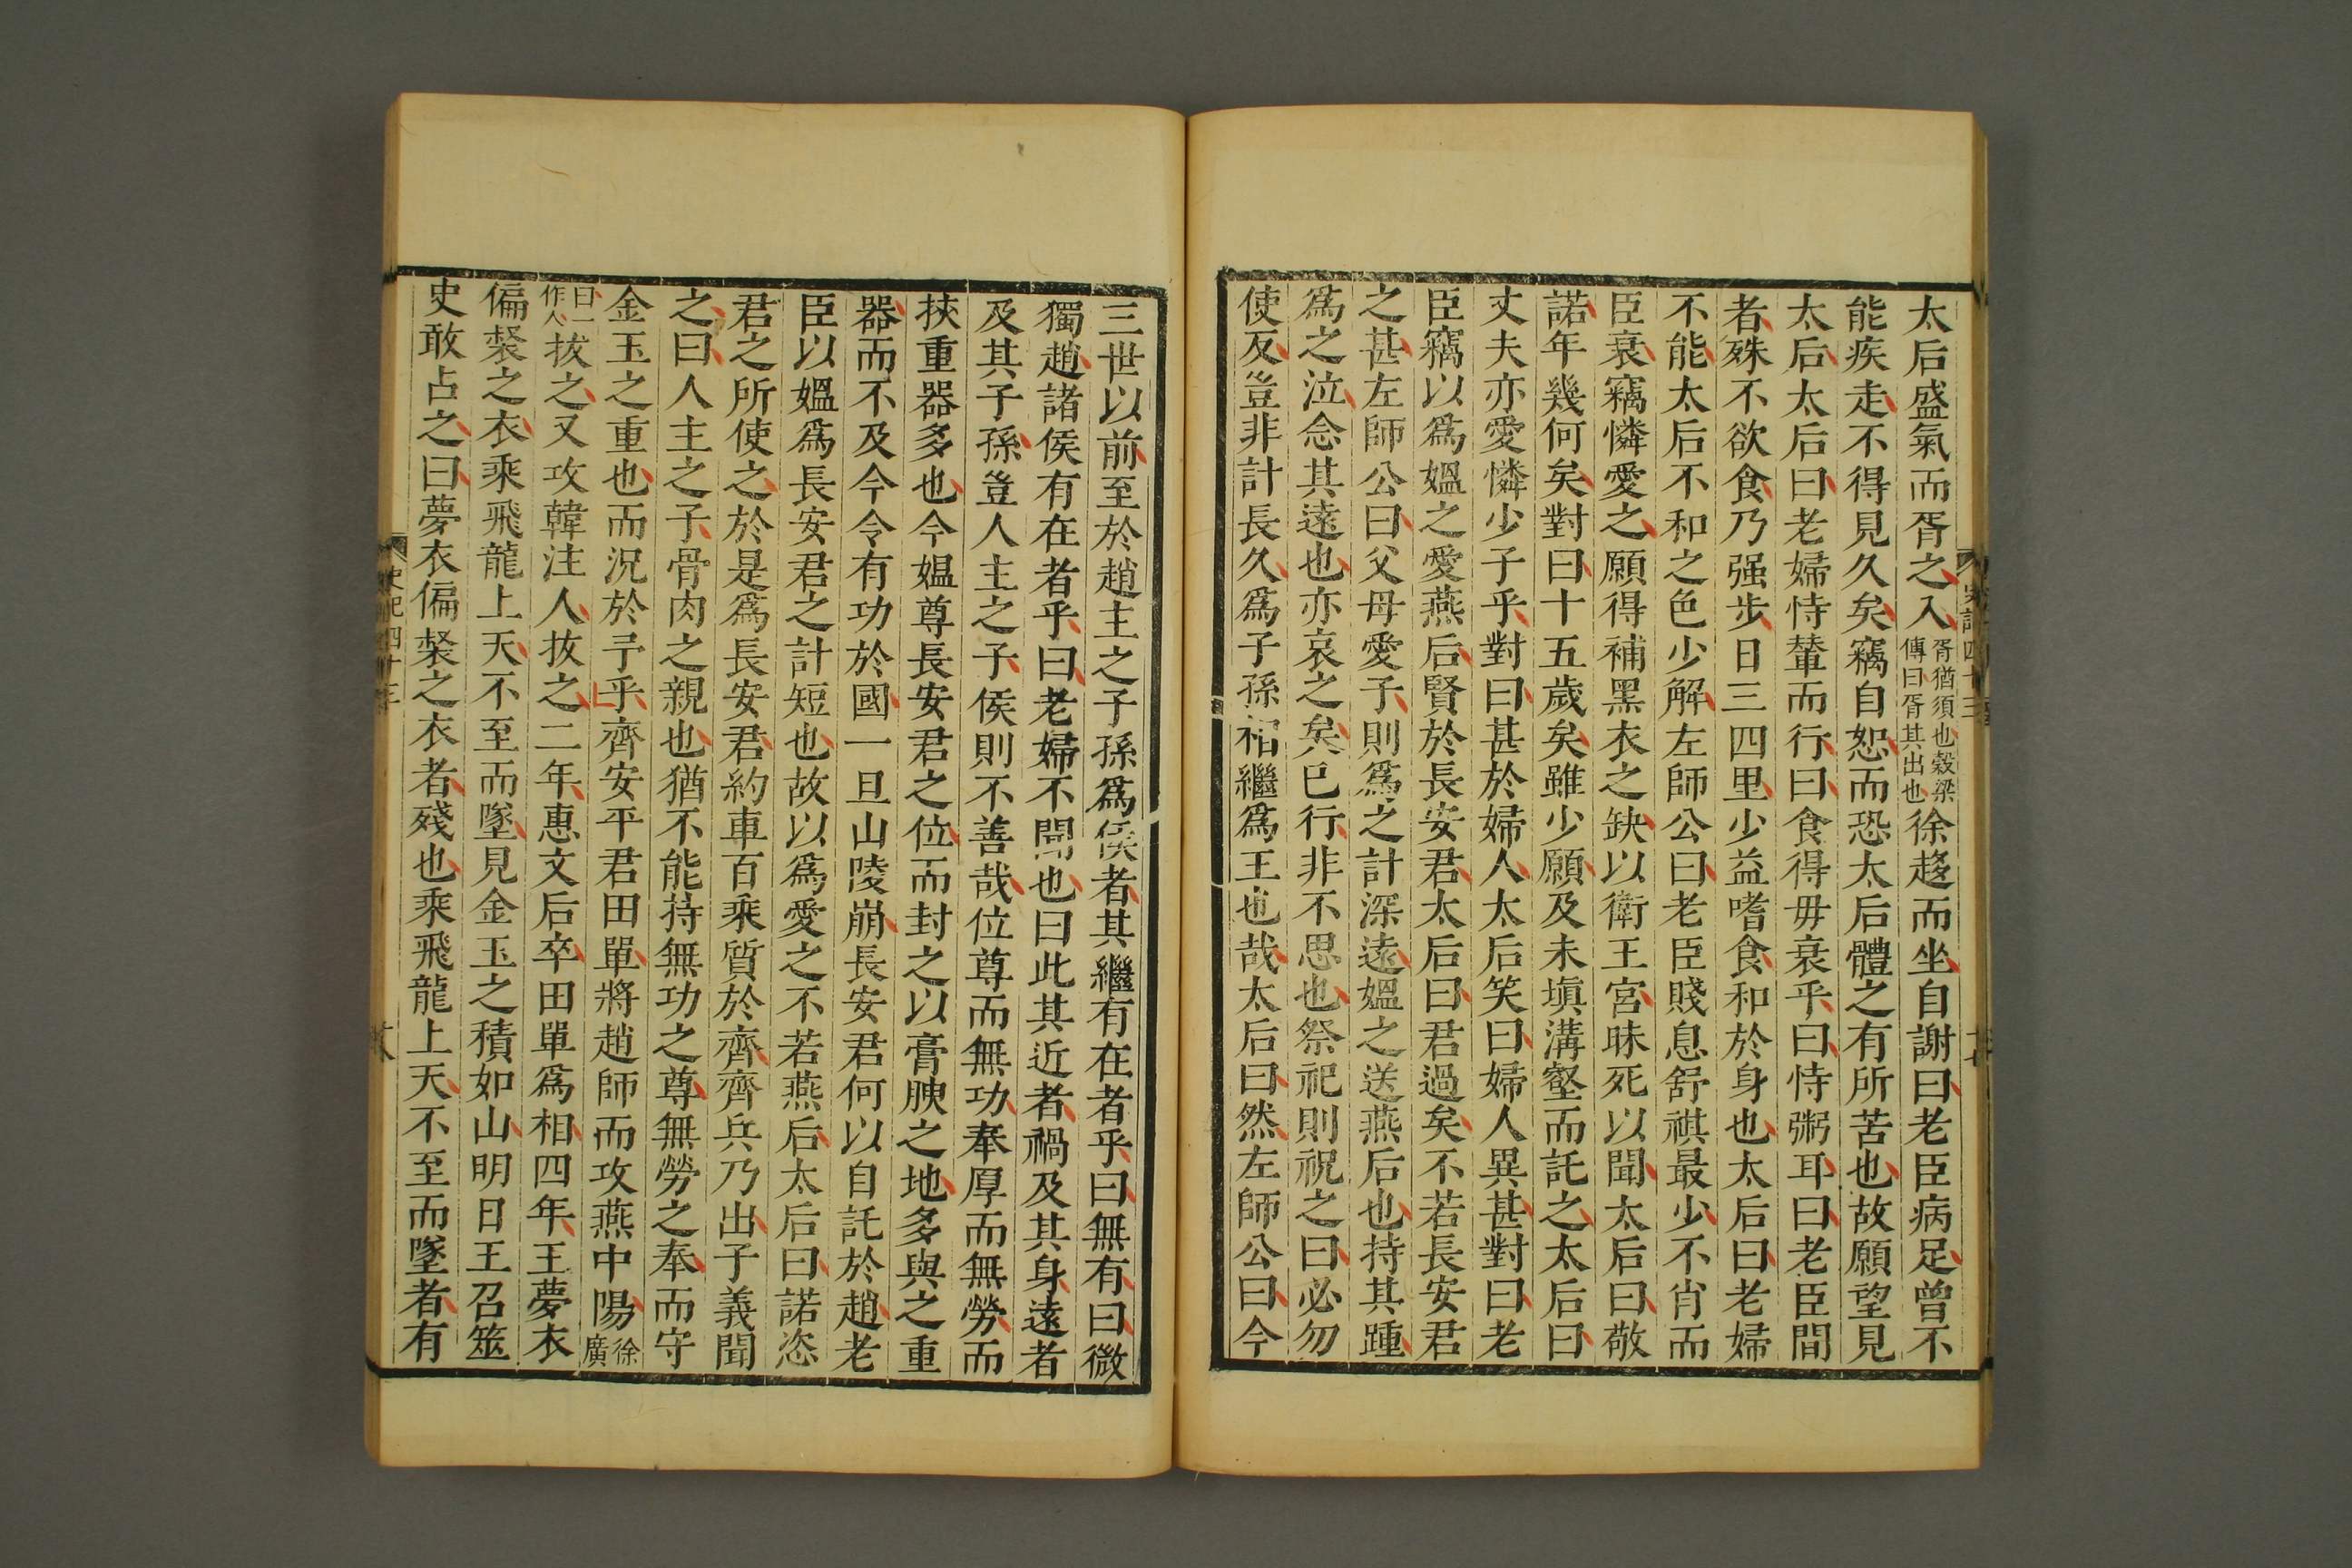 太后盛氣而胥之入胥猶須也穀梁傳曰胥其出也徐趍而坐自謝曰老臣病足曾不
能疾走不得見久矣竊自恕而恐太后體之有所苦也故願望見
太后太后曰老婦恃輦而行曰食得毋衰乎曰恃粥耳曰老臣間
者殊不欲食乃强步日三四里少益嗜食和於身也太后曰老婦
不能太后不和之色少解左師公曰老臣賤息舒祺最少不肖而
臣衰竊憐愛之願得補黑衣之缺以衛王宮昧死以聞太后曰敬
諾年幾何矣對曰十五歲矣雖少願及未塡溝壑而託之太后曰
丈夫亦愛憐少子乎對曰甚於婦人太后笑曰婦人異甚對曰老
臣竊以爲媼之愛燕后賢於長安君太后曰君過矣不若長安君
之甚左師公曰父母愛子則爲之計深遠媼之送燕后也持其踵
爲之泣念其遠也亦哀之矣已行非不思也祭祀則祝之曰必勿
使反豈非計長久爲子孫相繼爲王也哉太后曰然左師公曰今
三世以前至於趙主之子孫爲侯者其繼有在者乎曰無有曰微
獨趙諸侯有在者乎曰老婦不聞也曰此其近者禍及其身遠者
及其子孫豈人主之子侯則不善哉位尊而無功奉厚而無勞而
挾重器多也今媼尊長安君之位而封之以膏腴之地多與之重
器而不及今令有功於國一旦山陵崩長安君何以自託於趙老
臣以媼爲長安君之計短也故以爲愛之不若燕后太后曰諾恣
君之所使之於是爲長安君約車百乘質於齊齊兵乃出子義聞
之曰人主之子骨肉之親也猶不能持無功之尊無勞之奉而守
金玉之重也而況於予乎齊安平君田單將趙師而攻燕中陽徐廣
曰一作人拔之又攻韓注人拔之二年惠文后卒田單爲相四年王夢衣
偏裻之衣乘飛龍上天不至而墜見金玉之積如山明日王召筮
史敢占之曰夢衣偏裻之衣者殘也乘飛龍上天不至而墜者有
史記四十三